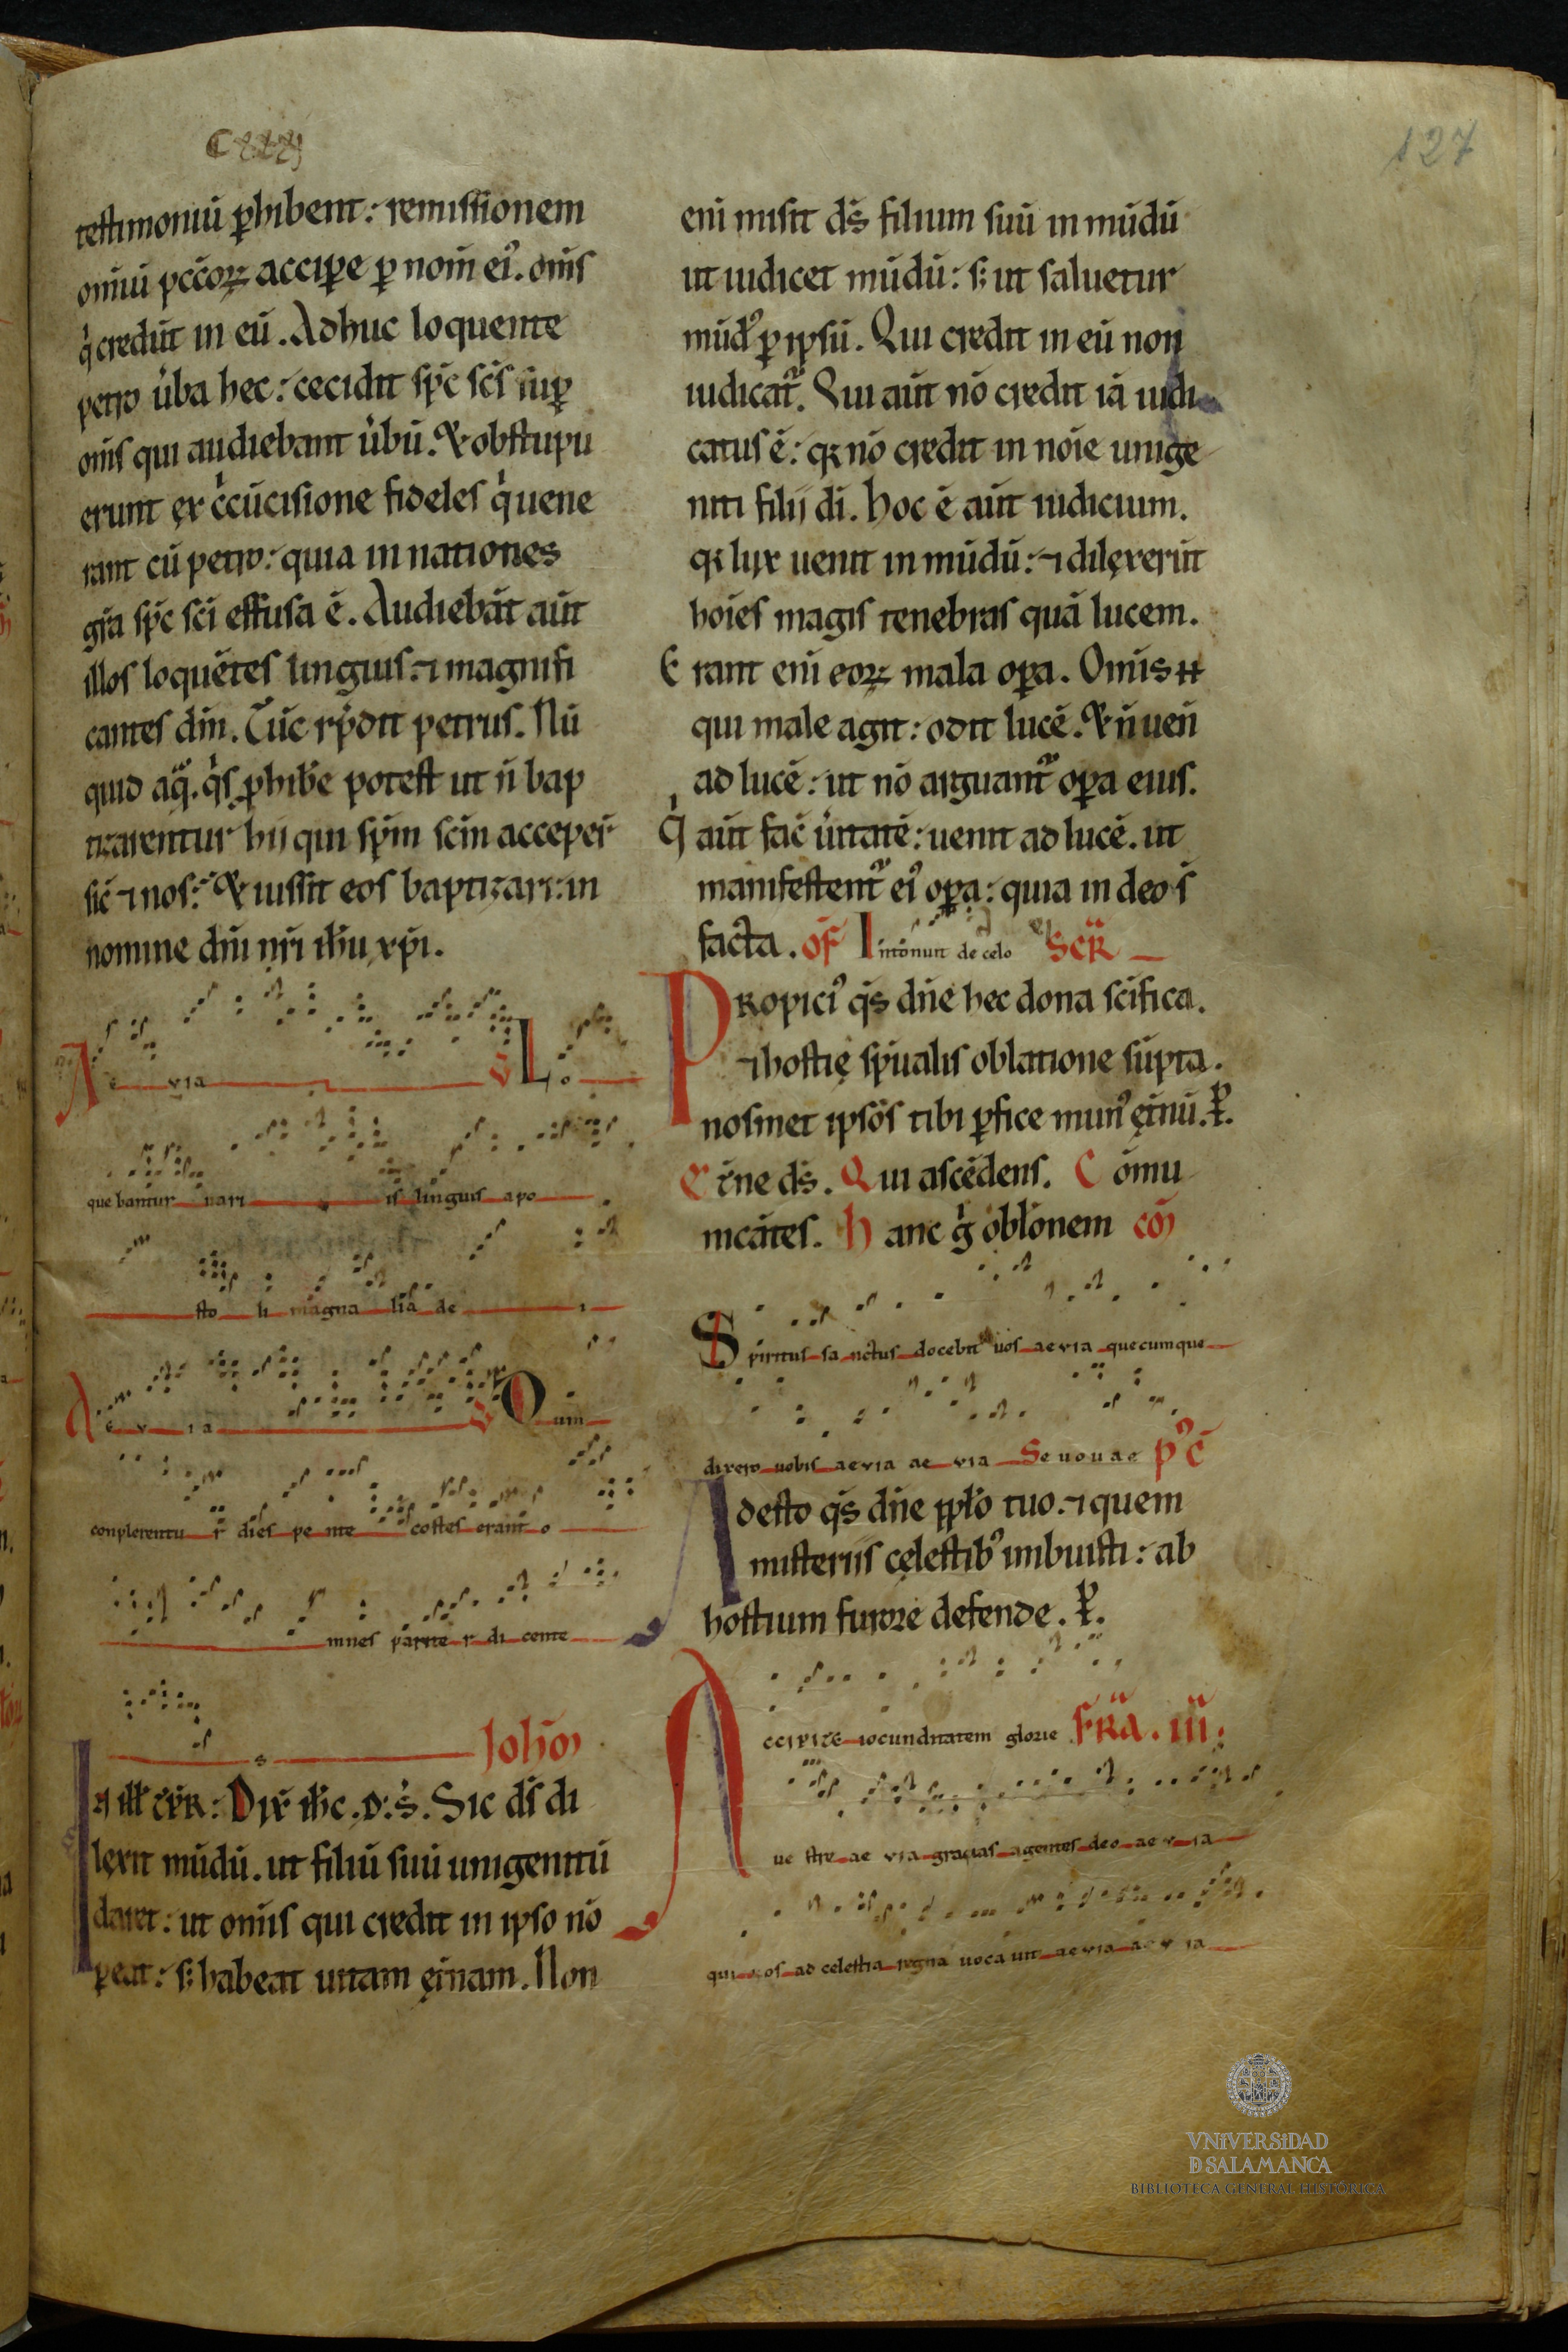 127
testimoniū ꝑhibent: remissionem
om̄iū pccōꝝ accipe ꝑ nom̄ ei᾽. om̄s
qͥ credūt in eū. Adhuc loquente
petro u̔ba hec: cecidit sp̄c sc̄s suꝑ
om̄s qui audiebant u̔bū. & obstupu
erunt ex c̔cūcisione fideles qͥ uene
rant cū petro: quia in nationes
gr̄a sp̄c sc̄i effusa ē. Audiebāt aūt
illos loquētes linguis: ⁊ magnifi
cantes dm̄. Tūc rn̄dit petrus. Nū
quid aqͣ. qͥs ꝓhibe̔ potest ut n̄ bap
tizarentur hii qui sp̄m sc̄m accepeꝶ
sic̄ ⁊ nos: & iussit eos baptizari: in
nomine dn̄i nr̄i ih̄u xp̄i.
Ae via V Lo
quebantur uari is linguis apo
sto li magna lia de i
Ae v ia V Qum
conplerentu r dies pe nte costes erant o
mnes parite r di cente
s Ioh̄
In ill̄ t̄pꝶ: Dix̄ ih̄c. d: s̔. Sic ds̄ di
lexit mūdū. ut filiū suū unigenitū
daret: ut om̄is qui credit in ipso nō
ꝑeat: s: habeat uitam et̔nam. Non
eni misit ds̄ filium suū in mūdū
ut iudicet mūdū: s: ut saluetur
mūd᾽ ꝑ ipsū. Qui credit in eū non
iudicat᷑. Qui aūt nō credit iā iudi
catus ē: qꝛ nō credit in noīe unige
niti filii di. hoc ē aūt iudicium.
qꝛ lux uenit in mūdū: ⁊ dilexerūt
hoīes magis tenebras quā lucem.
Erant eni eoꝝ mala oꝑa. Om̄is н
qui male agit: odit lucē. & n̄ uen̄
ad lucē: ut nō arguant᷑ oꝑa eius.
qͥ aūt fac̄ u̔itatē: uenit ad lucē. ut
manifestent᷑ ei᾽ oꝑa: quia in deo s̄
facta. of̄ Intonuit de celo Secꝶ
Propici᾽ qs̄ dn̄e hec dona sc̄ifica.
⁊ hostię sp̄ualis oblatione sūpta.
nosmet ipsos tibi ꝑfice mun᾽ et̔nū. ꝑ.
Et̔ne ds̄. Qui ascēdens. Cōmu
nicātes. hanc gͥ oblōnem cō
Spiritus sa nctus docebit uos aevia quecumque
dixero uobis aevia ae via Seuouae pᵒc̄
Adesto qs̄ dn̄e ppl̄o tuo. ⁊ quem
misteriis cęlestib᾽ imbuisti: ab
hostium furore defende. ꝑ.
Accipite iocunditatem glorie FꝶA. III.
ue stre ae via gracias agentes deo ae v ia
qui uos ad celestia regna uoca uit aevia ae v ia
VNiVERSiDAD
D SALAMANCA
BIBLIOTECA GENERAL HISTÓRICA